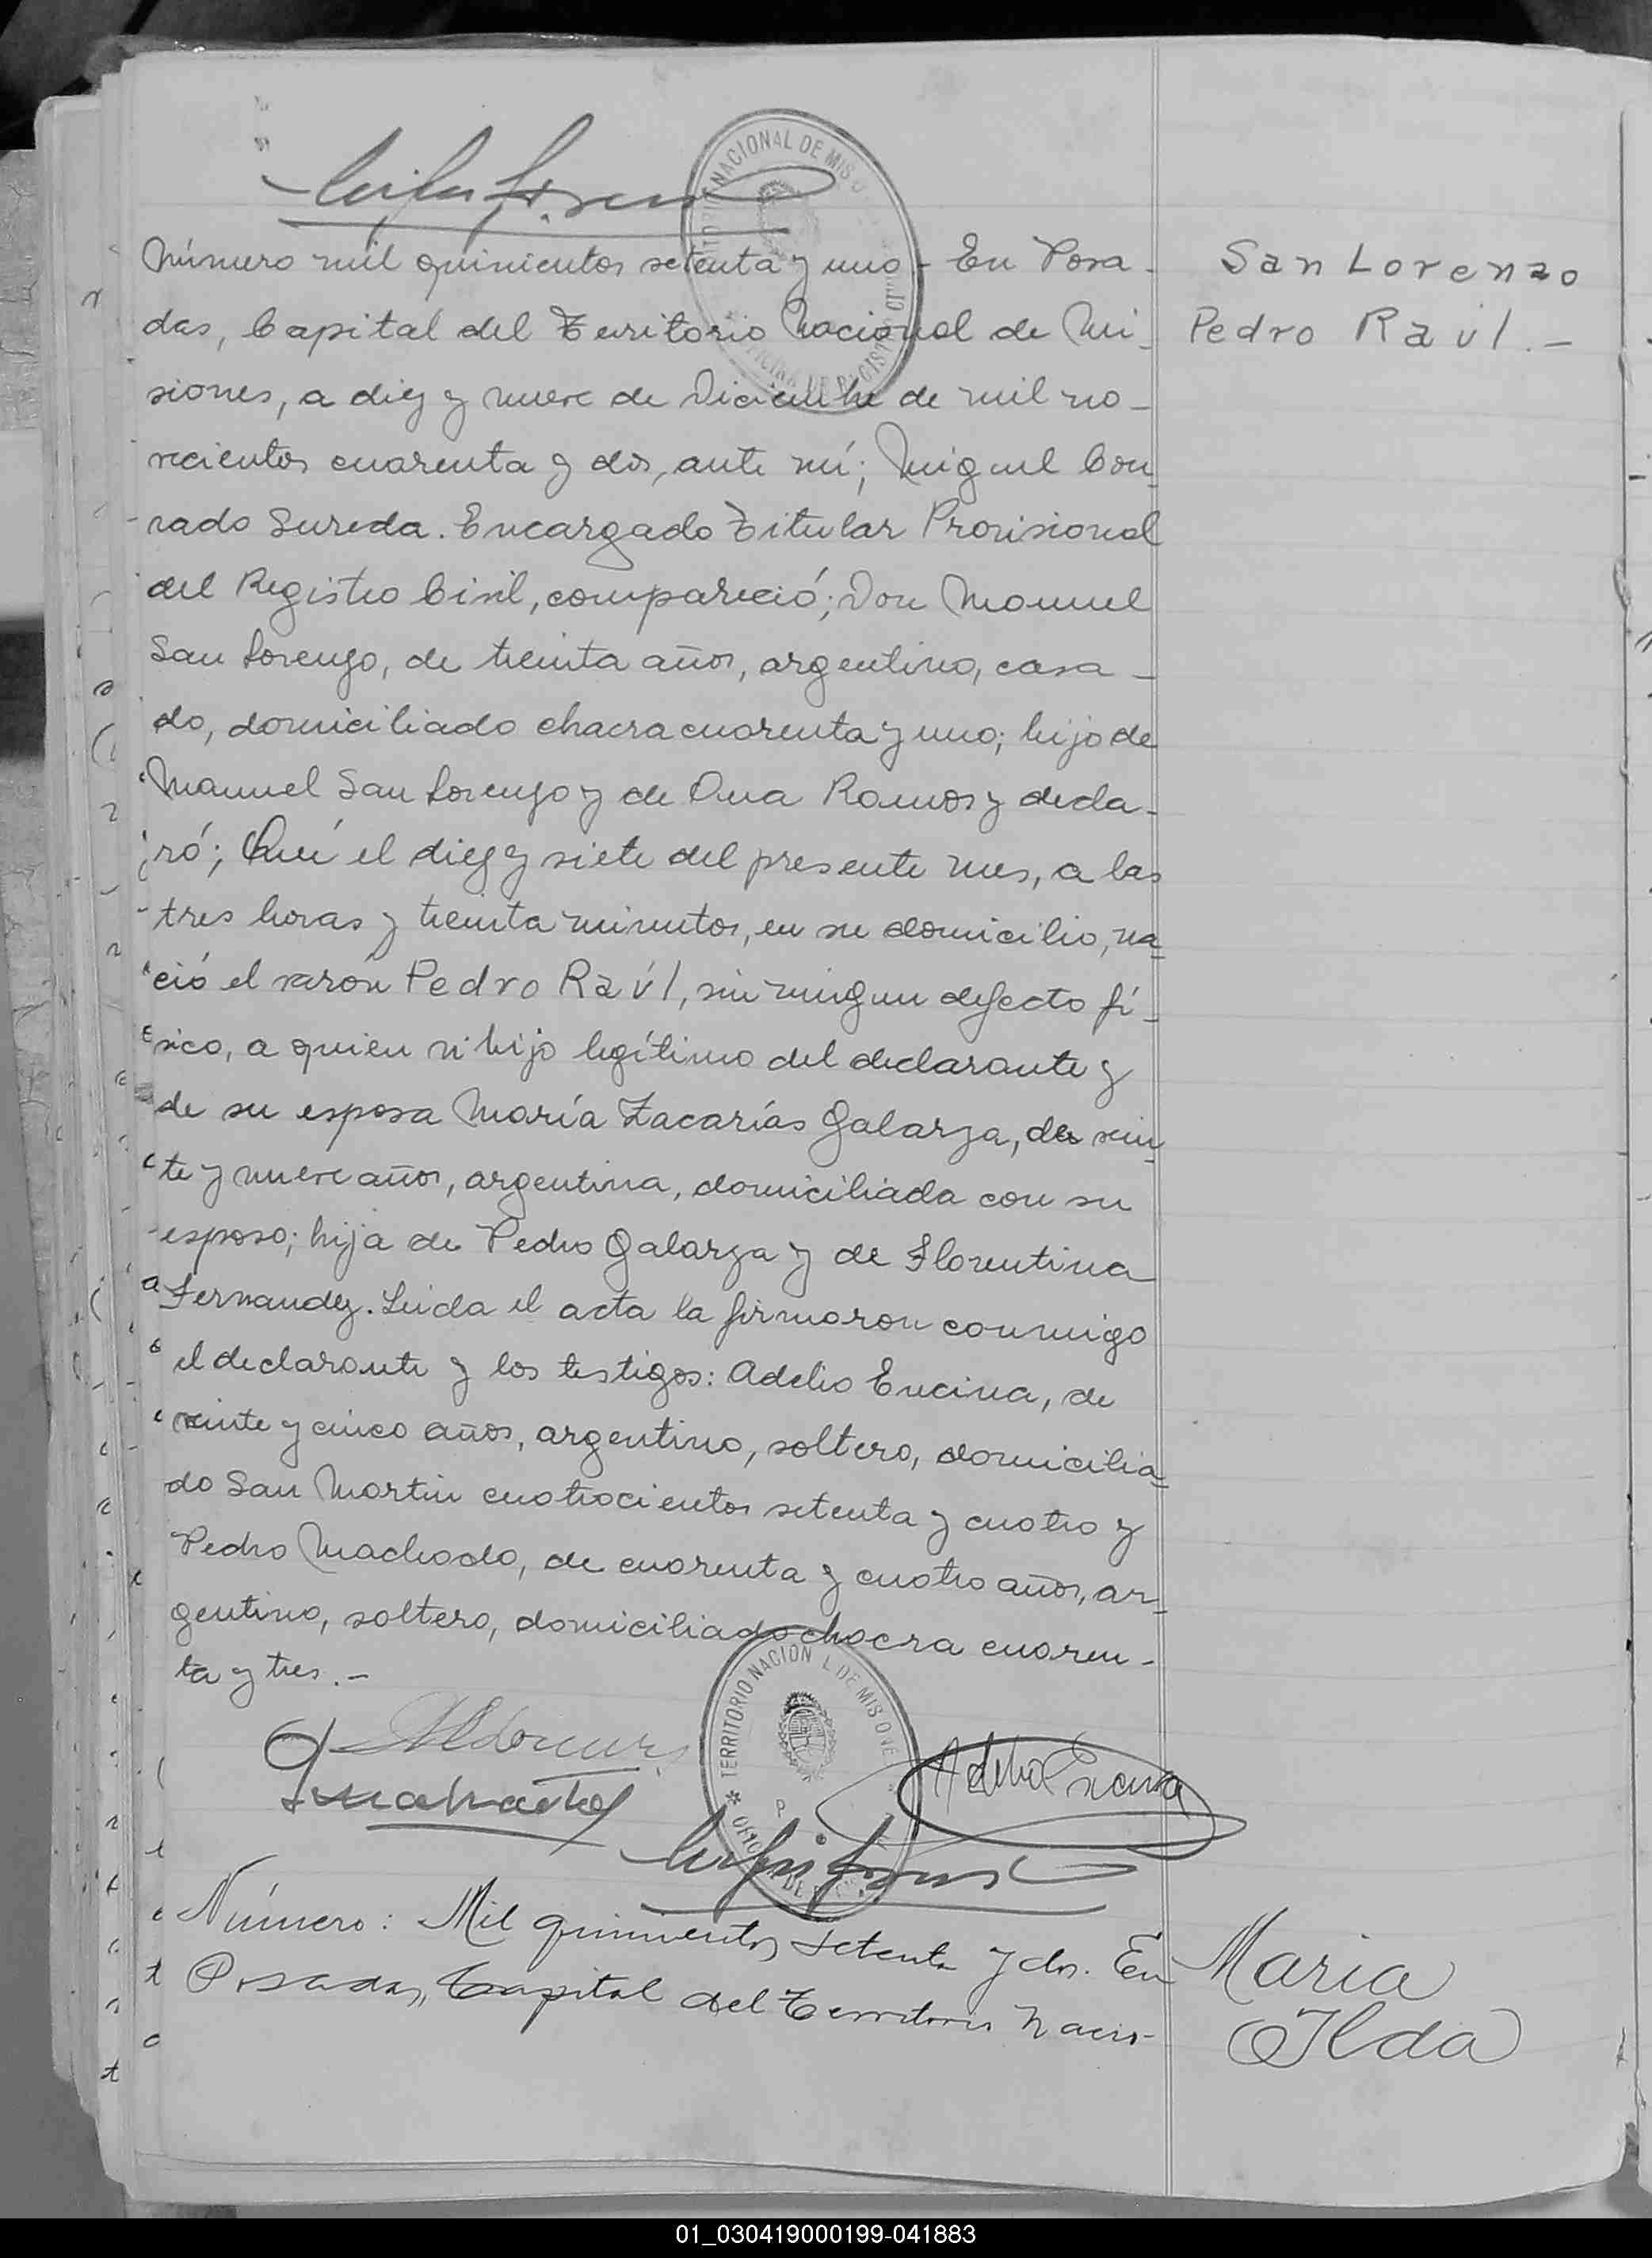 TERRITORIO NACIONAL DE MISIO
OFICINA DE REGISTRO CIVIL
Número mil quinientos setenta y uno - En Posa-
San Lorenzo
das, Capital del Territorio Nacional de Mi-
Pedro Raúl.-
siones, a diez y nueve de Diciembre de mil no-
vecientos cuarenta y dos, ante mí; Miguel Con-
rado Sureda. Encargado Titular Provisional
del Registro Civil, compareció; Don Manuel
San Lorenzo, de treinta años, argentino, casa-
do, domiciliado chacra cuarenta y uno; hijo de
Manuel San Lorenzo y de Ana Ramos y decla-
ró; Qué el diez y siete del presente mes, a las
tres horas y treinta minutos, en su domicilio, na-
ció el varón Pedro Raúl, sin ningun defecto fí-
sico, a quien vi hijo legítimo del declarante y
de su esposa María Zacarías Galarza, de vein-
te y nueve años, argentina, domiciliada con su
esposo; hija de Pedro Galarza y de Florentina
Fernandez. Leida el acta la firmaron conmigo
el declarante y los testigos: Adelio Encina, de
veinte y cinco años, argentino, soltero, domicilia-
do San Martin cuatrocientos setenta y cuatro y
Pedro Machado, de cuarenta y cuatro años, ar-
gentino, soltero, domiciliado chacra cuaren-
ta y tres.-
TERRITORIO NACION L DE MISIONE
Adelio Encina
Número: Mil quinientos setenta y dos. En
Maria
Posadas, Capital del Territorio Nacio-
Ilda
01_030419000199-041883